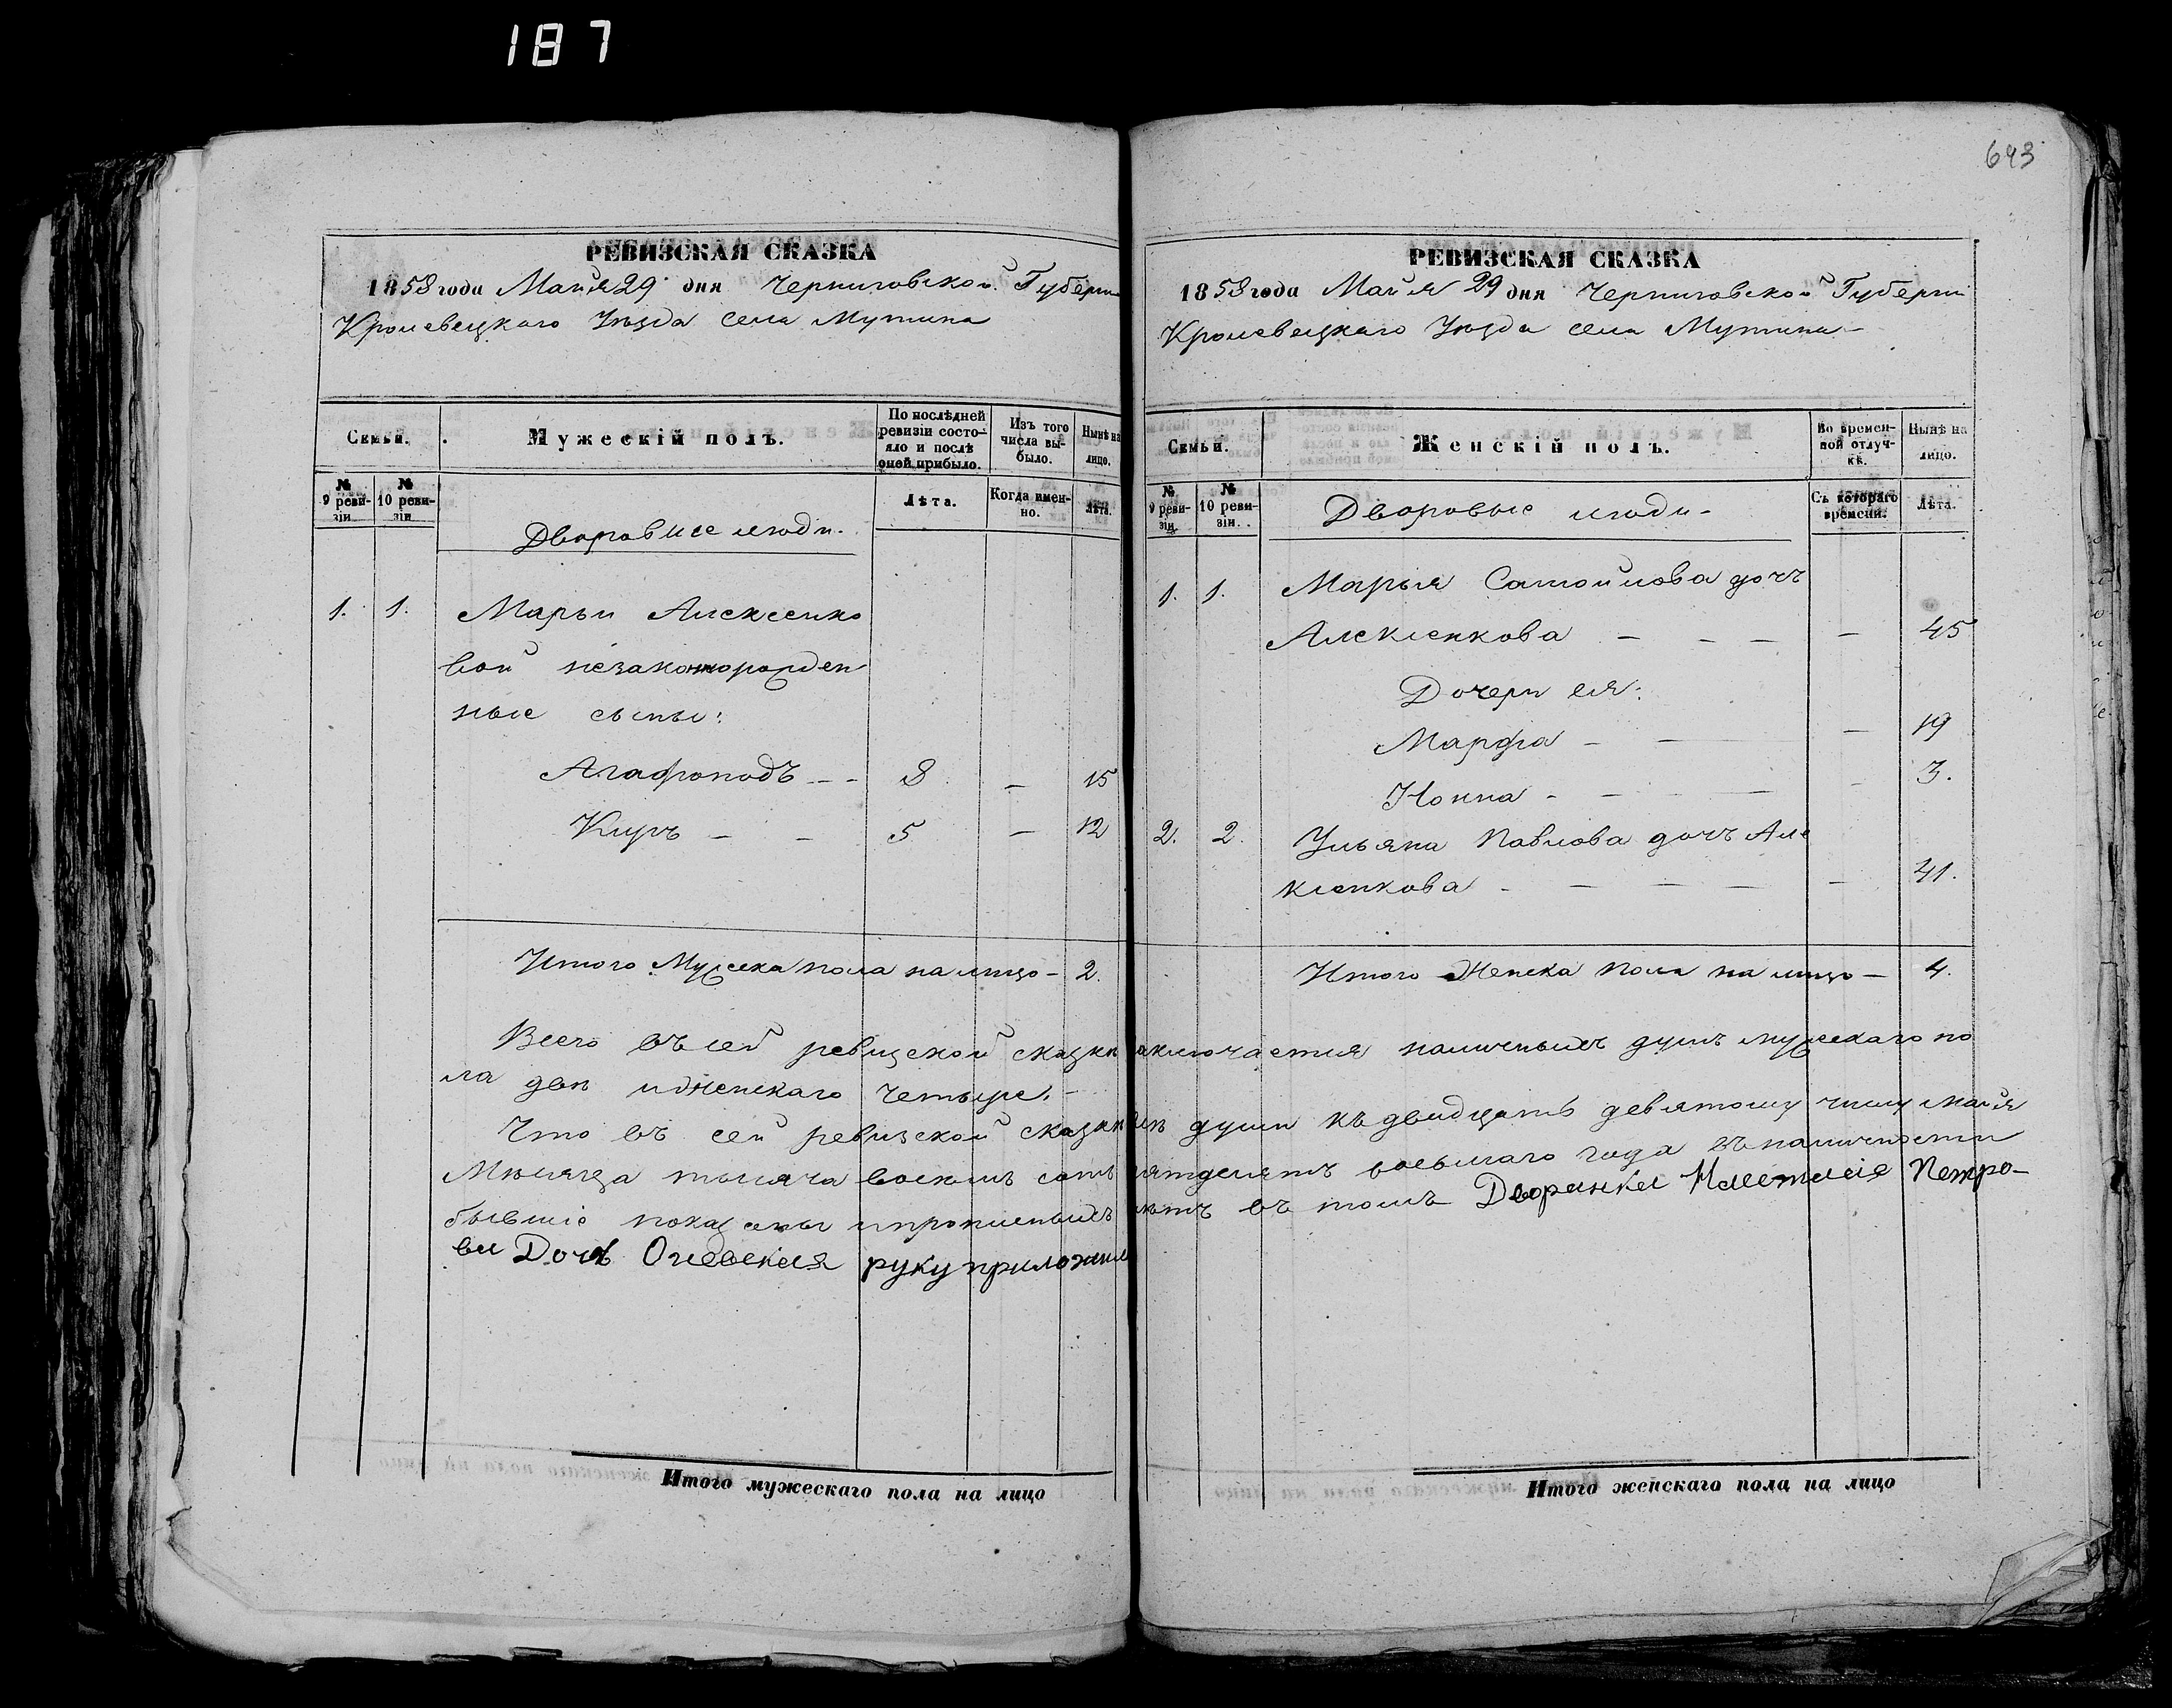 187
643
РЕВИЗСКАЯ СКАЗКА
1858 года Майя 29 дня Черниговской Губерн
Кролевецкаго Уезда села Мутина
Семьи.
Мужескій полъ.
По послѣдней ревизіи состо-
яло и послѣ
оной прибыло.
Изъ того
числа вы-
было.
Нынѣ на
лицо.
№
9 реви-
зіи
№
10 реви-
зіи
Лѣта.
Когда имен-
но.
Лѣта.
Дворовые люди.
1. 1. Марьи Алексенко
вой незаконнорожден
ные сыны:
Агафоподъ - - 8 - 15
Киръ - - 5 - 12
Итого Мужеска пола на лицо - 2.
РЕВИЗСКАЯ СКАЗКА
1858 года Майя 29 дня Черниговской Губерни
Кролевецкаго Уезда села Мутина -
Семьи.
Женскій полъ.
Во времен-
ной отлуч-
кѣ.
Нынѣ на
лицо.
№
9 реви-
зіи.
№
10 реви-
зіи.
Съ котораго
времени.
Лѣта.
Дворовые люди -
1. 1. Марья Самойлова дочъ
Алексенкова - - - - 45
Дочери ея:
Марфа - - - 19
Нонна - - - - - 3.
2. 2. Ульяна Павлова дочъ Але
ксенкова - - - - - 41.
Итого Женска пола на лицо - 4.
Всего въ сей ревизской сказки заключается наличныхъ душъ мужескаго по
ла две и Женскаго четыре. -
Что въ сей ревизской сказки все души къ двадцать девятому числу майя
Месяца тысяча восемъ сотъ пятдесятъ восьмаго года въ наличности
бывшіе показаны и прописныхъ нетъ въ томъ Дворянка Настасія Петро-
ва Дочь руку приложила
Итого мужескаго пола на лицо
Итого женскаго пола на лицо